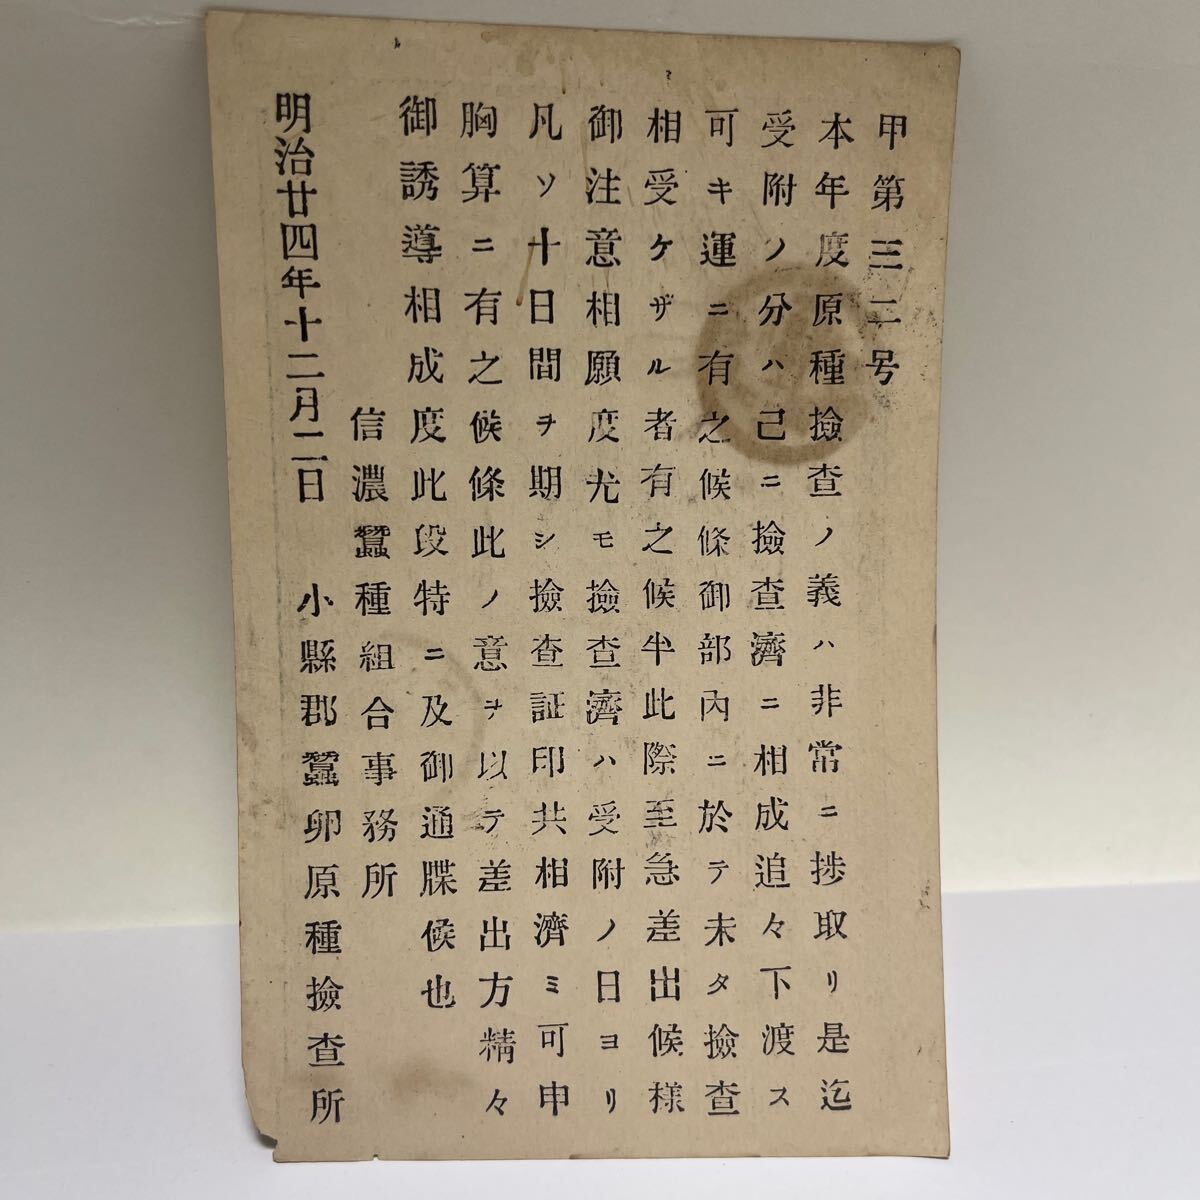 甲第三二号
本年度原種撿査ノ義ハ非常ニ捗取リ是迄
受附ノ分ハ己ニ撿査濟ニ相成追々下渡ス
可キ運ニ有之候條御部內ニ於テ未タ撿査
相受ケザル者有之候半此際至急差出候樣
御注意相願度尤モ撿査濟ハ受附ノ日ヨリ
凡ソ十日間ヲ期シ撿査証印共相濟ミ可申
胸算ニ有之候條此ノ意ヲ以テ差出方精々
御誘導相成度此段特ニ及御通牒候也
信濃蠶種組合事務所
明治廿四年十二月二日 小縣郡蠶卵原種撿査所